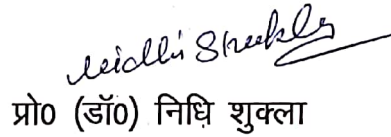 Nidhi Shukla
प्रो0 (डॉ0) निधि शुक्ला